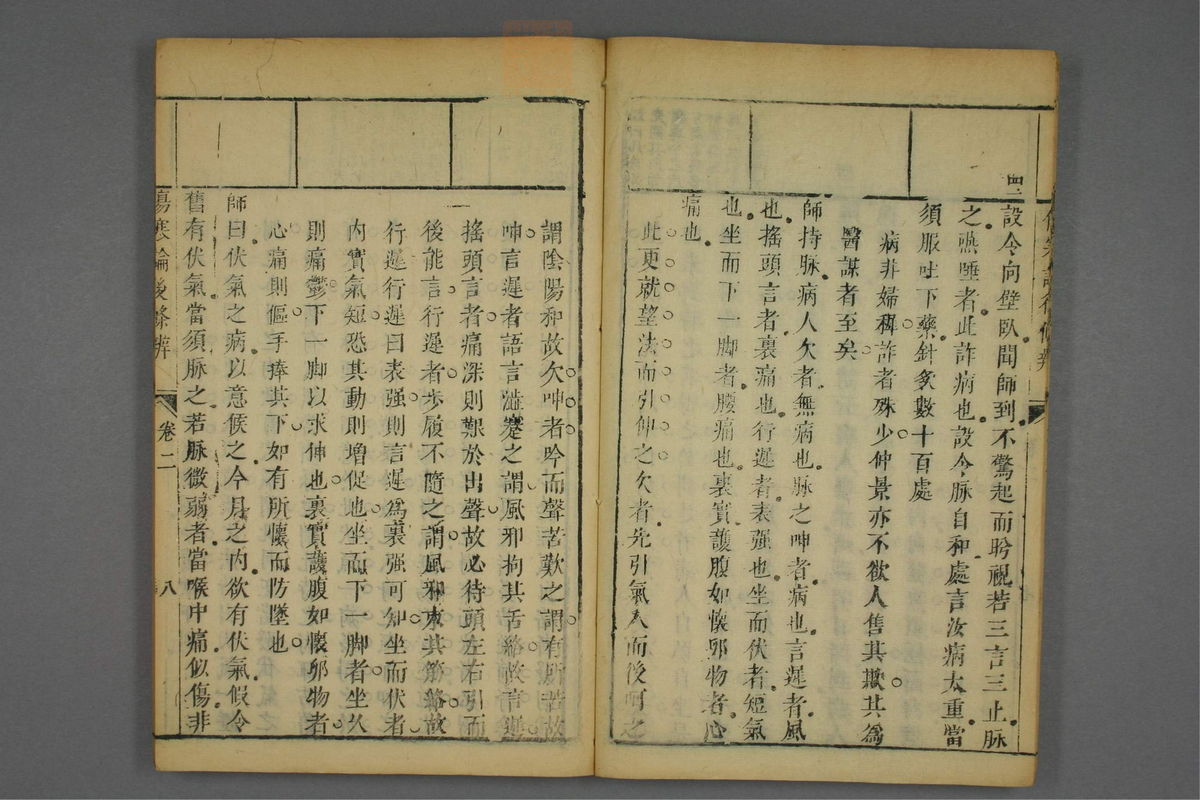 設令向壁臥聞師到不驚起而盻視若三言三止脉
之嚥唾者此詐病也設令脉自和處言汝病太重當
須服吐下藥針灸數十百處
病非婦稗詐者殊少仲景亦不欲人售其欺其爲
醫謀者至矣
師持脉病人欠者無病也脉之呻者病也言遲者風
也搖頭言者裏痛也行遲者表强也坐而伏者短氣
也坐而下一脚者腰痛也裏實護腹如懷卵物者心
痛也
此更就望法而引伸之欠者先引氣入而後呵之
謂陰陽和故欠呻者吟而聲苦歎之謂有所苦故
呻言遲者語言澁蹇之謂風邪拘其舌絡故言遲
搖頭言者痛深則艱於出聲故必待頭左右引而
後能言行遲者步履不隨之謂風邪束其筋絡故
行遲行遲曰表强則言遲爲裏强可知坐而伏者
内實氣短恐其動則增促也坐而下一脚者坐久
則痛鬱下一脚以求伸也裏實護腹如懷卵物者
心痛則傴手捧其下如有所懷而防墜也
師曰伏氣之病以意候之今月之内欲有伏氣假令
舊有伏氣當須脉之若脉微弱者當喉中痛似傷非
傷寒論後條辨 卷二 八